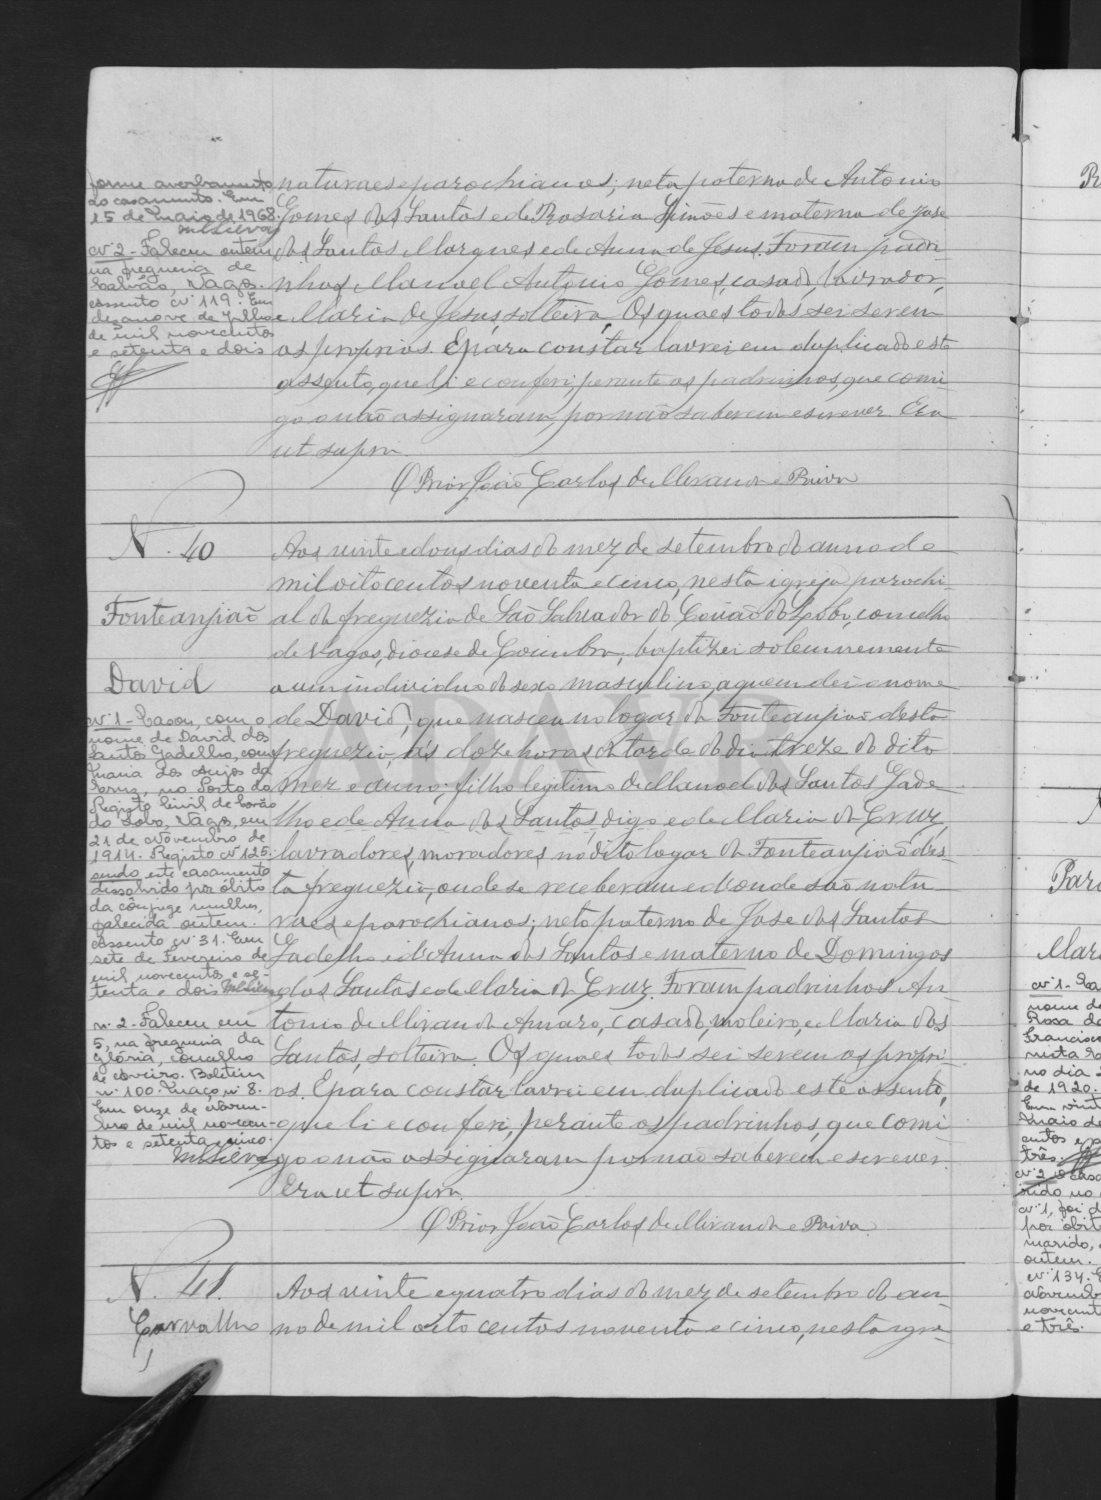 forme averbamento
do casamento. Em
15 de Maio de 1968.
MSilva
Nº 2 - Faleceu ontem
na freguesia de
Calvão, Vagos.
Assento Nº 119. Em
desanove de Julho
de mil novecentos
e setenta e dois
naturaes e parochianos; neta paterna de Antonio
Gomes dos Santos e de Rosaria Simões e materna de José
dos Santos Marques e de Anna de Jesus. Foram padri-
nhos Manoel Antonio Gomes, casado, lavrador,
e Maria de Jesus, solteira, Os quaes todos sei serem
os proprios. E para constar lavrei em duplicado este
assento, que li e conferi, perante os padrinhos, que comi-
go o não assignaram, por não saberem escrever Era
ut supra
O Prior João Carlos de Miranda e Paiva
N. 40
Fonteanjiaõ
David
Nº 1 - Casou, com o
nome de David dos
Santos Gadelho, com
Maria dos Anjos da
Cruz, no Posto do
Registo Civil de Covão
do Lobo, Vagos, em
21 de Novembro de
1914. Registo Nº 125.
sendo este casamento
dissolvido por óbito
da cônjuge mulher,
falecida ontem.
Assento Nº 31. Em
sete de Fevereiro de
mil novecentos e se-
tenta e dois MSilva
Nº 2 - Faleceu em
5, na freguesia da
Glória, concelho
de Aveiro. Boletim
nº 100. Maço nº 8.
Em onze de Novem-
bro de mil novecen-
tos e setenta e cinco.
MSilva
Aos vinte e dous dias do mez de setembro do anno de
mil oitocentos noventa e cinco, nesta igreja parochi-
al da freguezia de São Salvador do Covão do Lobo, concelho
de Vagos, diocese de Coimbra, baptizei solemnemente
a um individuo do sexo masculino, a quem dei o nome
de David, que nasceu no logar da Fonteanjiaõ desta
freguezia, ás doze horas da tarde do dia treze do dito
mez e anno; filho legitimo de Manoel dos Santos Gade-
lho e de Anna dos Santos, digo e de Maria da Cruz,
lavradores, moradores no dito logar da Fonteanjiaõ des-
ta freguezia, onde se receberam e d'onde são natu-
raes e parochianos; neto paterno de Jose dos Santos
Gadelho e d'Anna dos Santos e materno de Domingos
dos Santos e de Maria da Cruz. Foram padrinhos An-
tonio de Miranda Amaro, casado, moleiro, e Maria dos
Santos, solteira. Os quaes todos sei serem os propri-
os. E para constar lavrei em duplicado este assento,
que li e conferi, perante os padrinhos, que comi-
go o não assignaram por não saberem escrever.
Era ut supra.
O Prior João Carlos de Miranda e Paiva
N. 41.
Carvalho
Aos vinte e quatro dias do mez de setembro do an-
no de mil oito centos noventa e cinco, nesta igre-
Mari
Nº 1 - Ca
nome de
Rosa do
Francisco
no dia
de 1920.
Em vint
Maio de
três.
Nº 2 o casa
Nº 1, foi d
por óbit
marido,
ontem.
Nº 134. E
Novemb
novecent
e três.
ADAVR